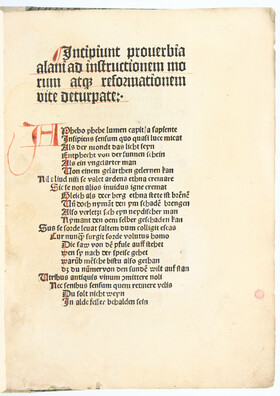 Incipiunt prouerbia
alani ad instructionem mo
rum atqȝ reformationem
vite deturpate:
A Phebo phebe lumen capit/a sapiente
Insipiens sensum quo quasi luce micat
Als der mond das licht seyn
Entpfecht von der sunnen schein
Als ein vngelarter man
Von einem gelarthen gelernen kan
Nil aliud nisi se valet ardens ethna cremare
Sic se non alios inuidus igne cremat
Gleich als der berg ethna stete ist brēnē
Vñ doch nymāt den ym schadē brengen
Also verleczt sich eyn neydischer man
Nymant den oem selber geschaden kan
Sus se sorde leuat saltem dum colligit escas
Cur nunqȝ surgit sorde volutus homo
Die saw von dē pfule auff stehet
wen sy nach der speise gehet
warūb mēsche bistu also gethan
dz du nūmer von den sundē wilt auf stan
Vtribus antiquis vinum cōmittere noli
Nec senibus sensum quem retinere velis
Du solt nicht weyn
In alde felle behalden sein